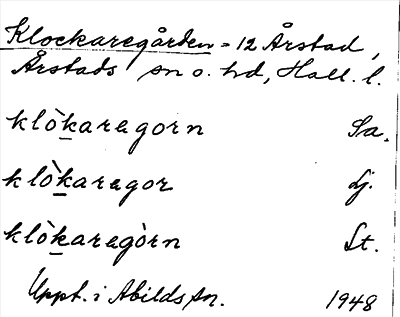 Klockaregården = 12 Årstad,
Årstads sn o. hd, Hall. l.
klò̱karagorn Sa.
klò̱karagor Lj.
klò̱karagòrn St.
Uppt. i Abilds sn. 1948